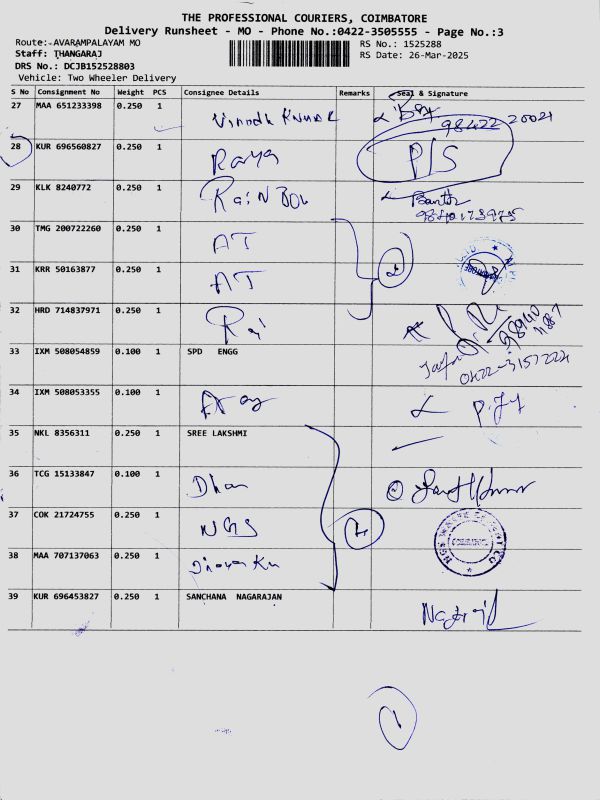 THE PROFESSIONAL COURIERS, COIMBATORE
Delivery Runsheet - MO - Phone No.:0422-3505555 - Page No.:3
Route:-AVARAMPALAYAM MO
RS No.: 1525288
Staff: THANGARAJ
RS Date: 26-Mar-2025
DRS No.: DCJB152528803
Vehicle: Two Wheeler Delivery
S No Consignment No Weight PCS Consignee Details Remarks Seal & Signature
27 MAA 651233398 0.250 1 Vinodh Kumar
28 KUR 696560827 0.250 1 P/S
29 KLK 8240772 0.250 1 RaiNBow
30 TMG 200722260 0.250 1 AT
31 KRR 50163877 0.250 1 AT
32 HRD 714837971 0.250 1 Raj
33 IXM 508054859 0.100 1 SPD ENGG
0422-3157222
34 IXM 508053355 0.100 1
35 NKL 8356311 0.250 1 SREE LAKSHMI
36 TCG 15133847 0.100 1 Dhan
37 COK 21724755 0.250 1 NGS
38 MAA 707137063 0.250 1
39 KUR 696453827 0.250 1 SANCHANA NAGARAJAN